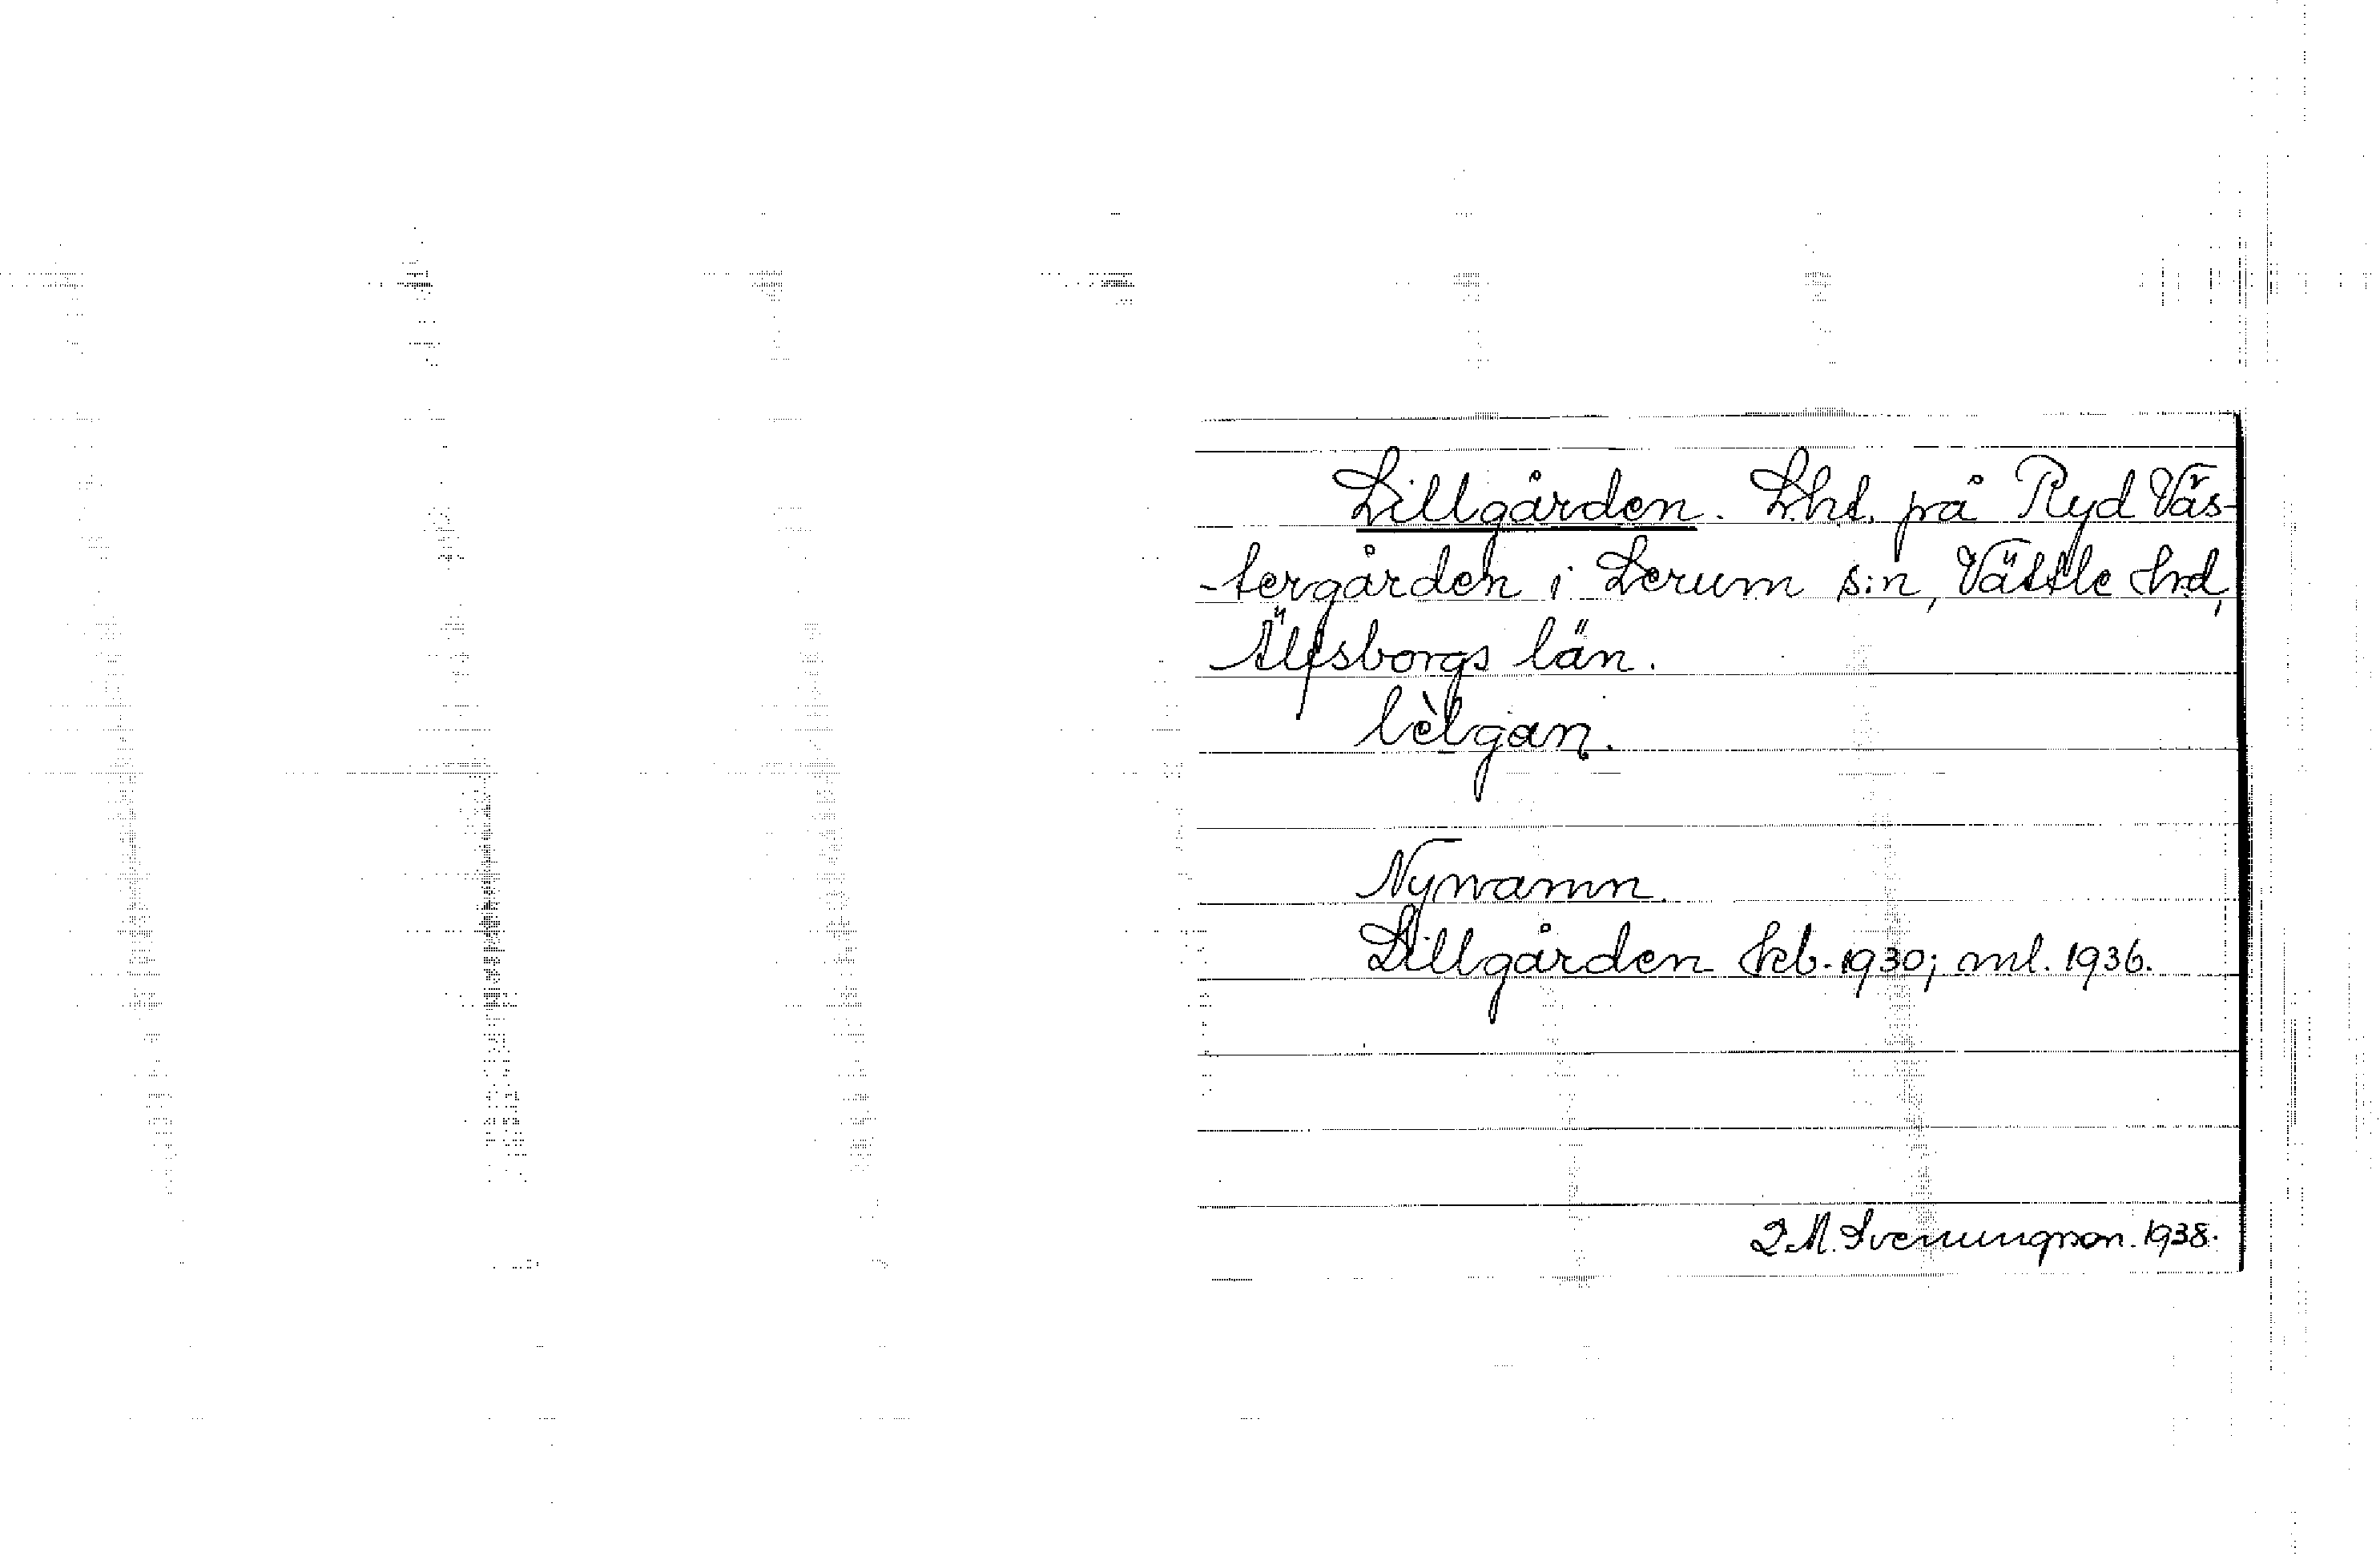 Lillgården. Lht. på Ryd Väs-
-tergården i Lerum s:n, Vättle hd,
Älfsborgs län.
lèlgan.
Nynamn.
Lillgården kb. 1930; ml. 1936.
Svenungson. 1938.